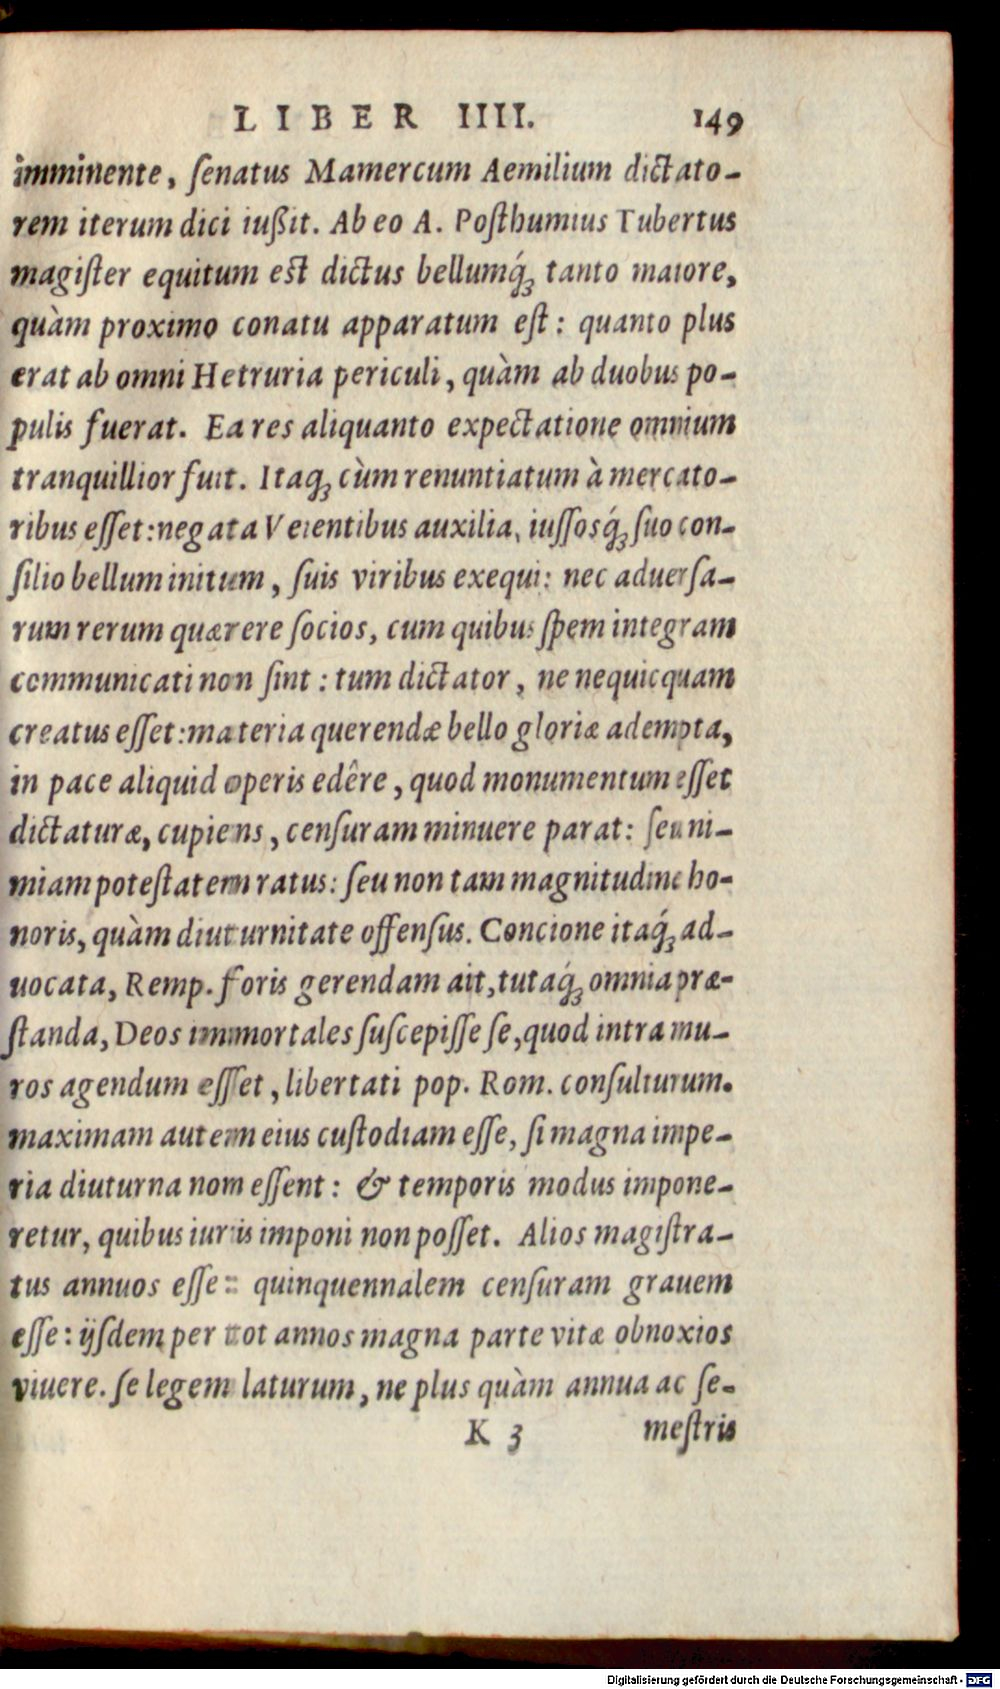 LIBER IIII. 149
imminente, ſenatus Mamercum Aemilium dictato-
rem iterum dici iußit. Ab eo A. Poſthumius Tubertus
magiſter equitum eſt dictus bellumq́ꝫ tanto maiore,
quàm proximo conatu apparatum eſt: quanto plus
erat ab omni Hetruria periculi, quàm ab duobus po-
pulis fuerat. Ea res aliquanto expectatione omnium
tranquillior fuit. Itaqꝫ cùm renuntiatum à mercato-
ribus eſſet: negata Veientibus auxilia, iuſſosq́ꝫ ſuo con-
ſilio bellum initum, ſuis viribus exequi: nec aduerſa-
rum rerum quærere ſocios, cum quibus ſpem integram
communicati non ſint: tum dictator, ne nequicquam
creatus eſſet: materia querendæ bello gloriæ adempta,
in pace aliquid operis edêre, quod monumentum eſſet
dictaturæ, cupiens, cenſuram minuere parat: ſeu ni-
miam poteſtatem ratus: ſeu non tam magnitudine ho-
noris, quàm diuturnitate offenſus. Concione itaq́ꝫ ad-
uocata, Remp. foris gerendam ait, tutaq́ꝫ omnia præ-
ſtanda, Deos immortales ſuſcepiſſe ſe, quod intra mu-
ros agendum eſſet, libertati pop. Rom. conſulturum.
maximam autem eius cuſtodiam eſſe, ſi magna impe-
ria diuturna nom eſſent: & temporis modus impone-
retur, quibus iuris imponi non poſſet. Alios magiſtra-
tus annuos eſſe: quinquennalem cenſuram grauem
eſſe: ijſdem per tot annos magna parte vitæ obnoxios
viuere. ſe legem laturum, ne plus quàm annua ac ſe-
K 3 meſtris
Digitalisierung gefördert durch die Deutsche Forschungsgemeinschaft - DFG